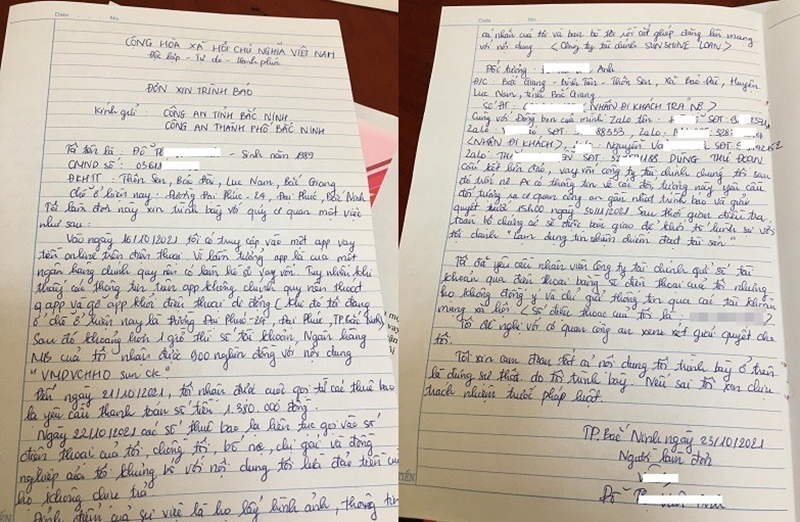 Date No.
CÔNG HÒA XÃ HỘI CHỦ NGHĨA VIỆT NAM
Độc lập - Tự do - Hạnh phúc
ĐƠN XIN TRÌNH BÁO
Kính gửi: CÔNG AN TỈNH BẮC NINH
CÔNG AN THÀNH PHỐ BẮC NINH
Tôi tên là: Đỗ T - Sinh năm 1989
CMND số: 03618
ĐKHTT: Thôn Sen, Bảo Đài, Lục Nam, Bắc Giang
Chỗ ở hiện nay: Đường Đại Phúc - 24, Đại Phúc, Bắc Ninh
Tôi làm đơn này xin trình bày với quý cơ quan một việc
như sau:
Vào ngày 16/10/2021 tôi có truy cập vào một app vay
tiền online trên điện thoại. Vì lầm tưởng app là của một
ngân hàng chính quy nên có làm hồ sơ vay vốn. Tuy nhiên khi
thấy các thông tin trên app không chính quy nên thoát
app và gỡ app khỏi điện thoại di động (khi đó tôi đang
ở chỗ ở hiện nay là Đường Đại Phúc-24, Đại Phúc, TP. Bắc Ninh)
Sau đó khoảng hơn 1 giờ thì số tài khoản, Ngân hàng
MB của tôi nhận được 900 nghìn đồng với nội dung
"VNDVCHHO sun ck"
Đến ngày 21/10/2021, tôi nhận được cuộc gọi từ các thuê bao
lạ yêu cầu thanh toán số tiền 1.380.000 đồng.
Ngày 22/10/2021 các số thuê bao lạ liên tục gọi vào số
điện thoại của tôi, chồng tôi, bố mẹ, chị gái và đồng
nghiệp của tôi khủng bố với nội dung tôi lừa đảo tiền của
họ không chịu trả.
điểm của sự việc là họ lấy hình ảnh, thông tin
Date No.
cá nhân của tôi và bạn bè tôi rồi cắt ghép đăng lên mạng
với nội dung <Công ty tài chính SUNSHINE LOAN>
Đối tượng: Anh
Đ/C: Bắc Giang - Thôn Sen, Xã Bảo Đài, Huyện
Lục Nam, tỉnh Bắc Giang
Số ĐT: NHẮN ĐI KHÁCH TRẢ NỢ)
Cùng với Đồng bọn của mình Zalo tên: SĐT:
Zalo: SĐT: 88353, Zalo: SĐT 328
<NHẮN ĐI KHÁCH>, Nguyễn Va SĐT
Zalo: TH SĐT 32 188 DÙNG THỦ ĐOẠN
cấu kết lừa đảo, vay vốn công ty tài chính chúng tôi sau
đó trốn nợ. Ai có thông tin về các đối tượng này yêu cầu
đối tượng ra cơ quan công an gần nhất trình báo và giải
quyết trước 15h00 ngày 30/11/2021. Sau thời gian điều tra
toàn bộ chứng cứ sẽ được bàn giao để khởi tố hình sự với
tội danh "Lạm dụng tín nhiệm chiếm đoạt tài sản".
Tôi đã yêu cầu nhân viên Công ty tài chính gửi số tài
khoản qua điện thoại bằng số điện thoại của tôi nhưng
họ không đồng ý và chỉ gửi thông tin qua các tài khoản
mạng xã hội. (Số điện thoại của tôi là:
Tôi đề nghị với cơ quan công an xem xét giải quyết cho
tôi.
Tôi xin cam đoan tất cả nội dung tôi trình bày ở trên
là đúng sự thật do tôi trình bày. Nếu sai tôi xin chịu
trách nhiệm trước pháp luật.
TP. Bắc Ninh ngày 23/10/2021
Người làm đơn
Đỗ T